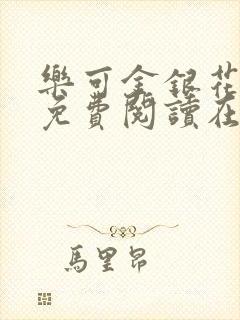 樂可金銀花
免費閱讀在
馬里昂